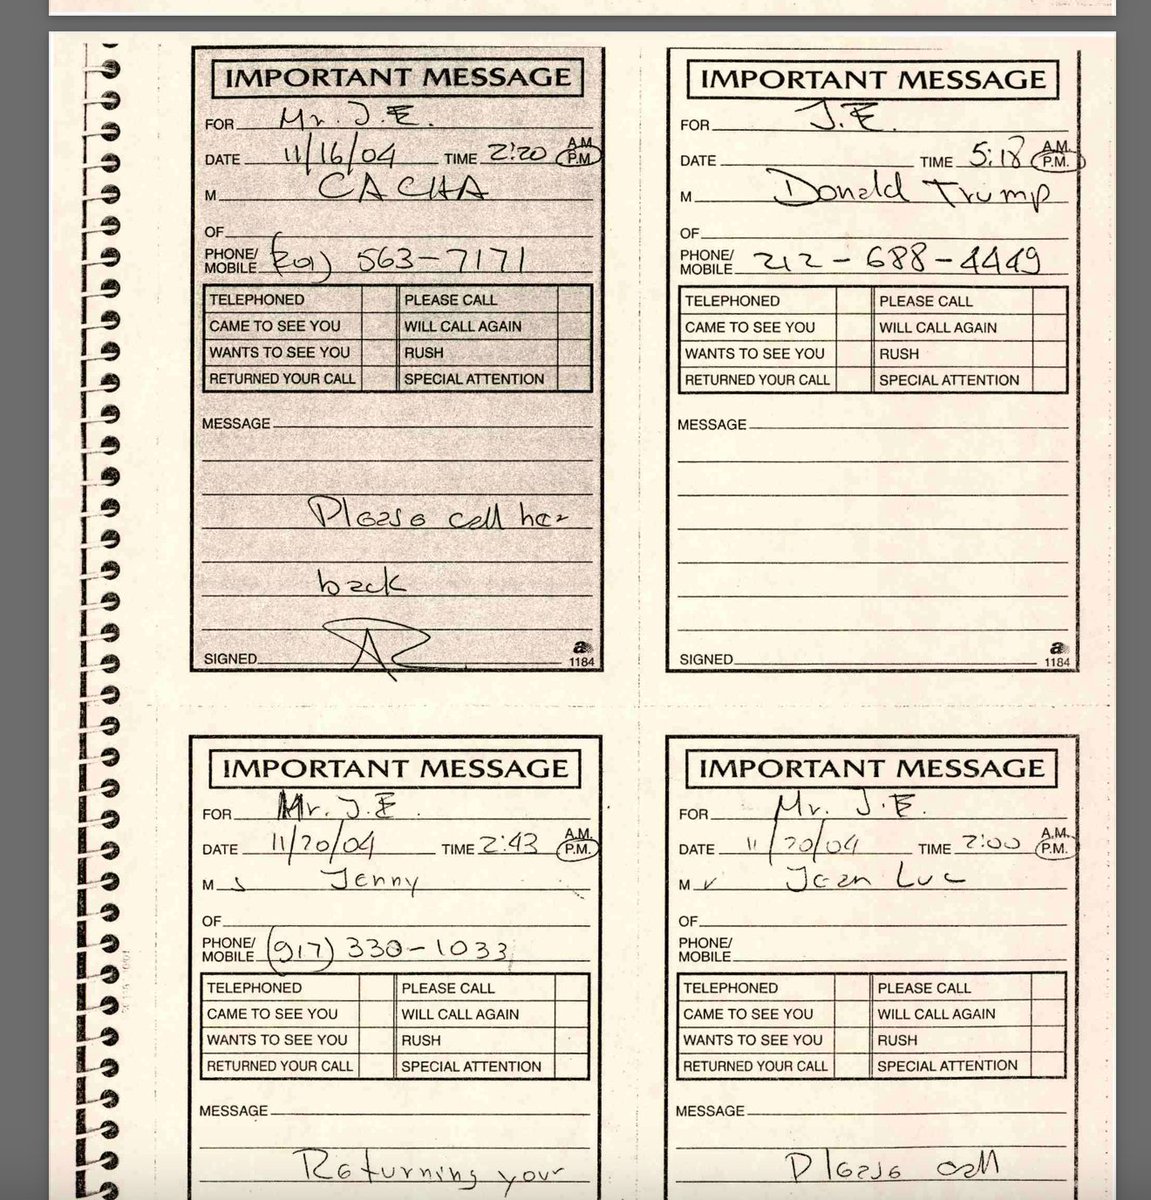 IMPORTANT MESSAGE
FOR Mr. J.E.
DATE 11/16/04 TIME 2:20 A.M. P.M.
M CACHA
OF
PHONE/
MOBILE (201) 563-7171
TELEPHONED PLEASE CALL
CAME TO SEE YOU WILL CALL AGAIN
WANTS TO SEE YOU RUSH
RETURNED YOUR CALL SPECIAL ATTENTION
MESSAGE
Please call her
back
SIGNED
1184
IMPORTANT MESSAGE
FOR J.E.
DATE TIME 5:18 A.M. P.M.
M Donald Trump
OF
PHONE/
MOBILE 212-688-4449
TELEPHONED PLEASE CALL
CAME TO SEE YOU WILL CALL AGAIN
WANTS TO SEE YOU RUSH
RETURNED YOUR CALL SPECIAL ATTENTION
MESSAGE
SIGNED
1184
IMPORTANT MESSAGE
FOR Mr. J.E.
DATE 11/20/04 TIME 2:43 A.M. P.M.
M s Jenny
OF
PHONE/
MOBILE (917) 330-1033
TELEPHONED PLEASE CALL
CAME TO SEE YOU WILL CALL AGAIN
WANTS TO SEE YOU RUSH
RETURNED YOUR CALL SPECIAL ATTENTION
MESSAGE
Returning your
IMPORTANT MESSAGE
FOR Mr. J.E.
DATE 11/20/04 TIME 2:00 A.M. P.M.
M r Jean Luc
OF
PHONE/
MOBILE
TELEPHONED PLEASE CALL
CAME TO SEE YOU WILL CALL AGAIN
WANTS TO SEE YOU RUSH
RETURNED YOUR CALL SPECIAL ATTENTION
MESSAGE
Please call